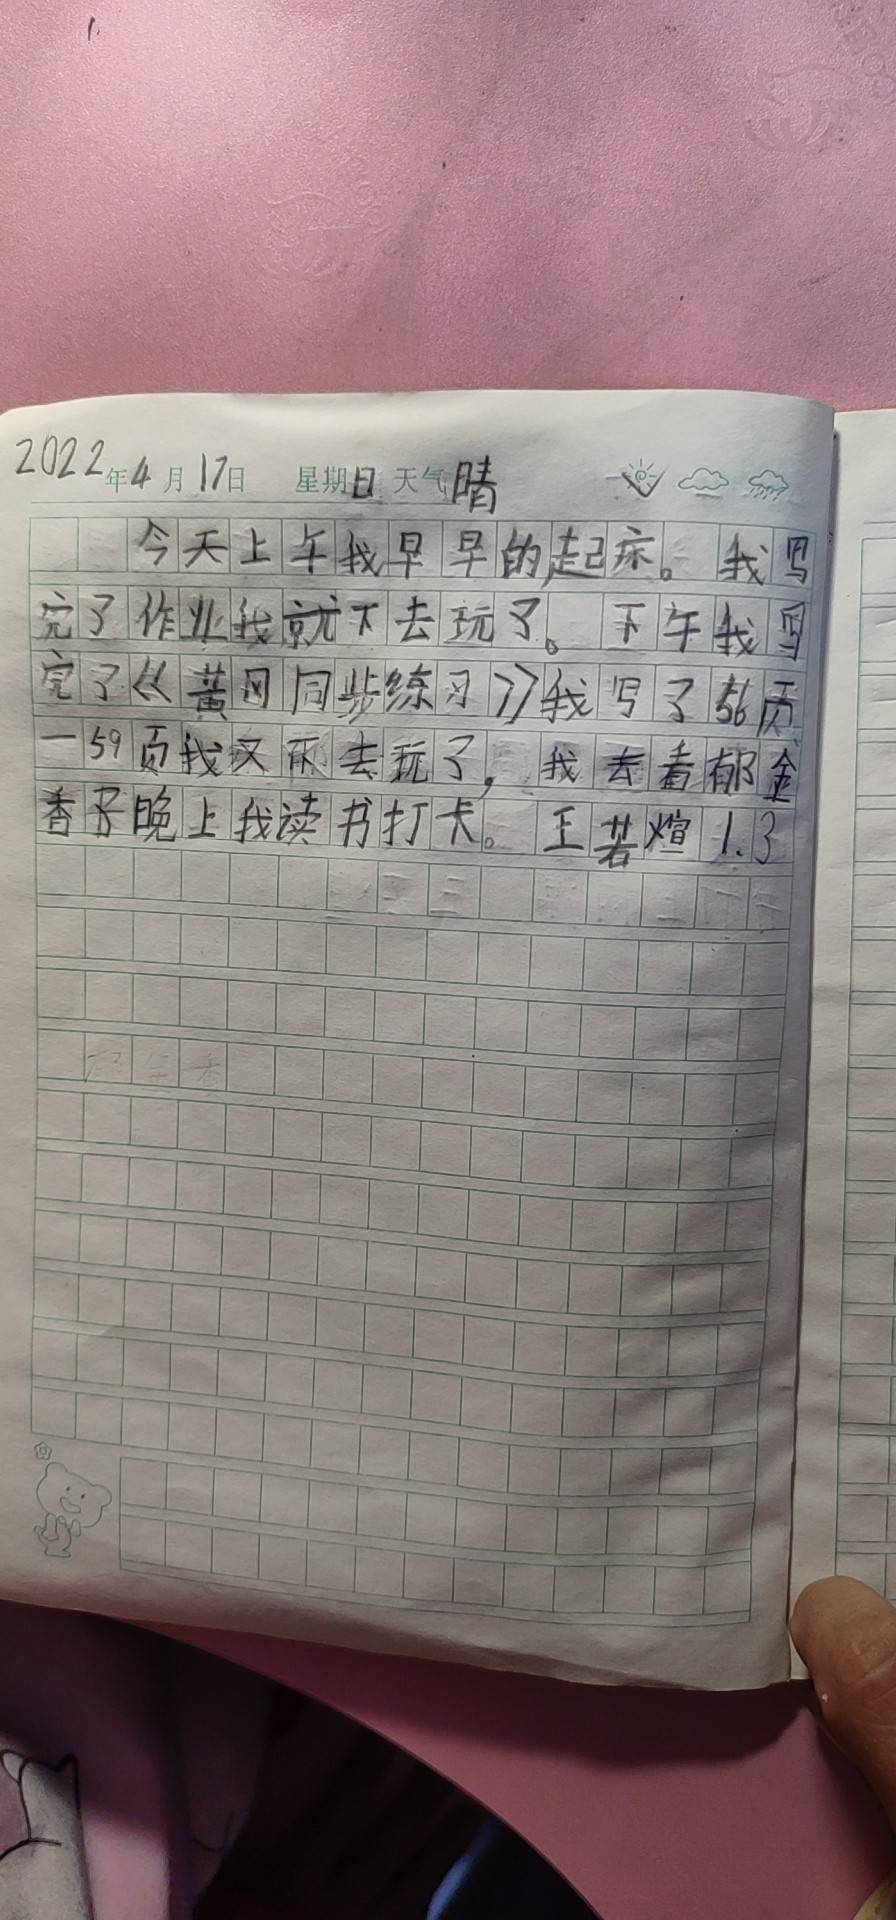 2022年4月17日 星期日 天气晴
今天上午我早早的起床。我写
完了作业我就下去玩了。下午我写
完了《黄冈同步练习》我写了56页
一59页我又下去玩了，我去看郁金
香了晚上我读书打卡。王若煊1.3